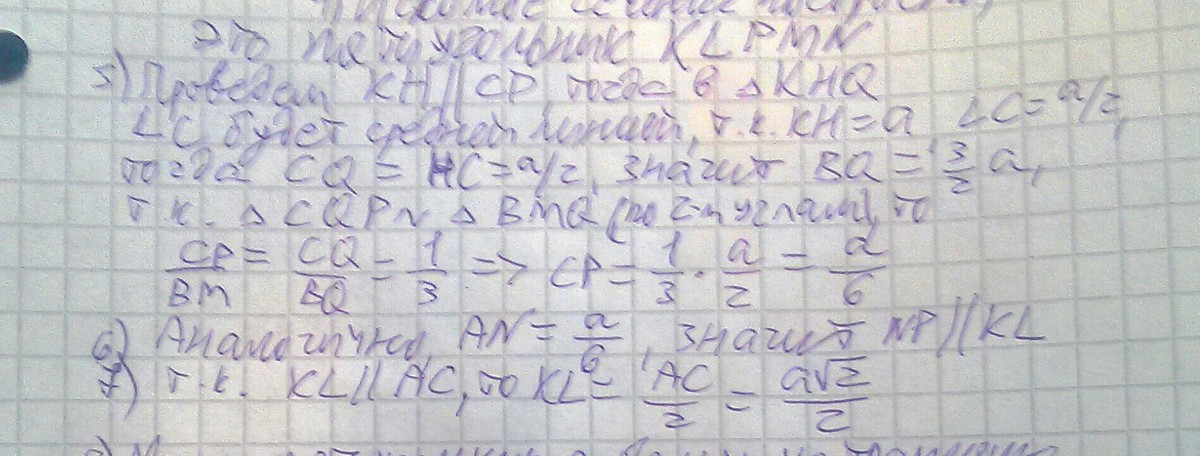 Это пятиугольник KLPMN
5) Проведем KH || CP, тогда в △KHQ
LC будет средней линией, т.к. KH = a LC = a/2,
тогда CQ = HC = a/2, значит BQ = 3/2 a,
т.к. △ CQP ~ △ BMQ (по 2-м углам), то
CP/BM = CQ/BQ = 1/3 => CP = 1/3 · a/2 = a/6
6) Аналогично, AN = a/6, значит NP || KL
7) т.к. KL || AC, то KL = AC/2 = a√2/2